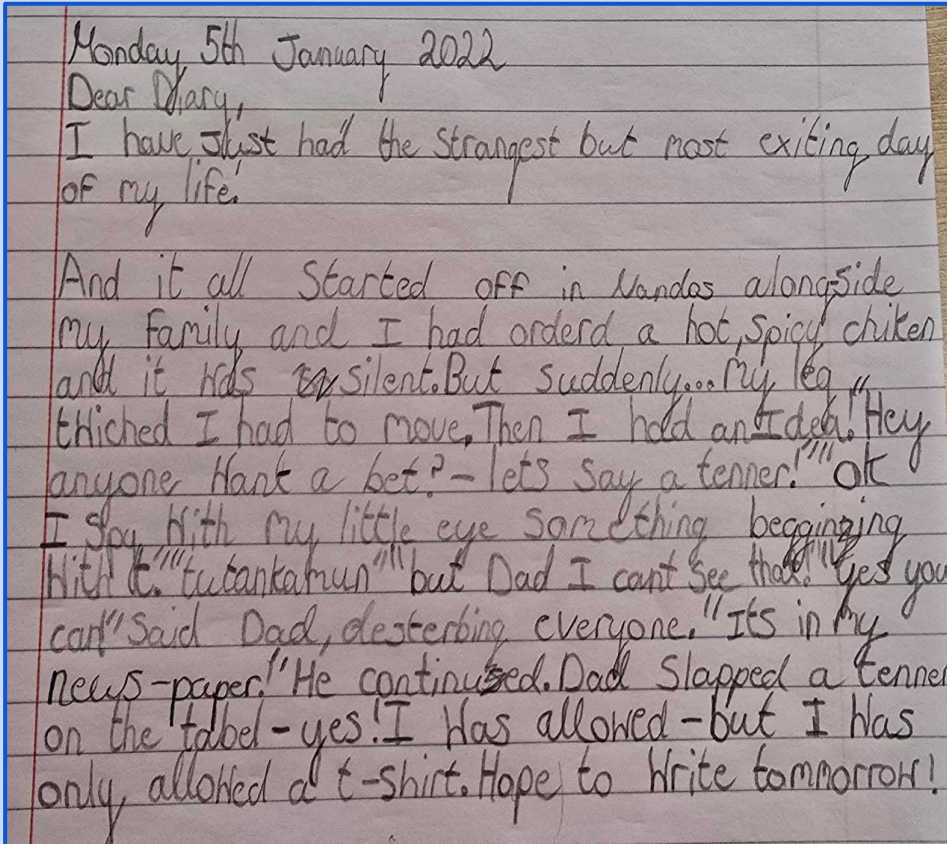 Monday 5th January 2022
Dear Diary,
I have Just had the strangest but most exiting day
of my life!
And it all Started off in Nandos alongside
my family and I had orderd a hot, spicy chiken
and it was silent. But suddenly... my leg
twiched I had to move. Then I hdd an Idea! "Hey
anyone Want a bet? - lets say a tenner!" "ok
I Spy With my little eye something beggining
With t." "tutankamun" "but Dad I cant see that!" "yes you
can" Said Dad, desterbing everyone. "Its in my
news-paper!" He continued. Dad Slapped a tenner
on the tabel - yes! I Was allowed - but I Was
only allowed a t-shirt. Hope to Write tommorrow!